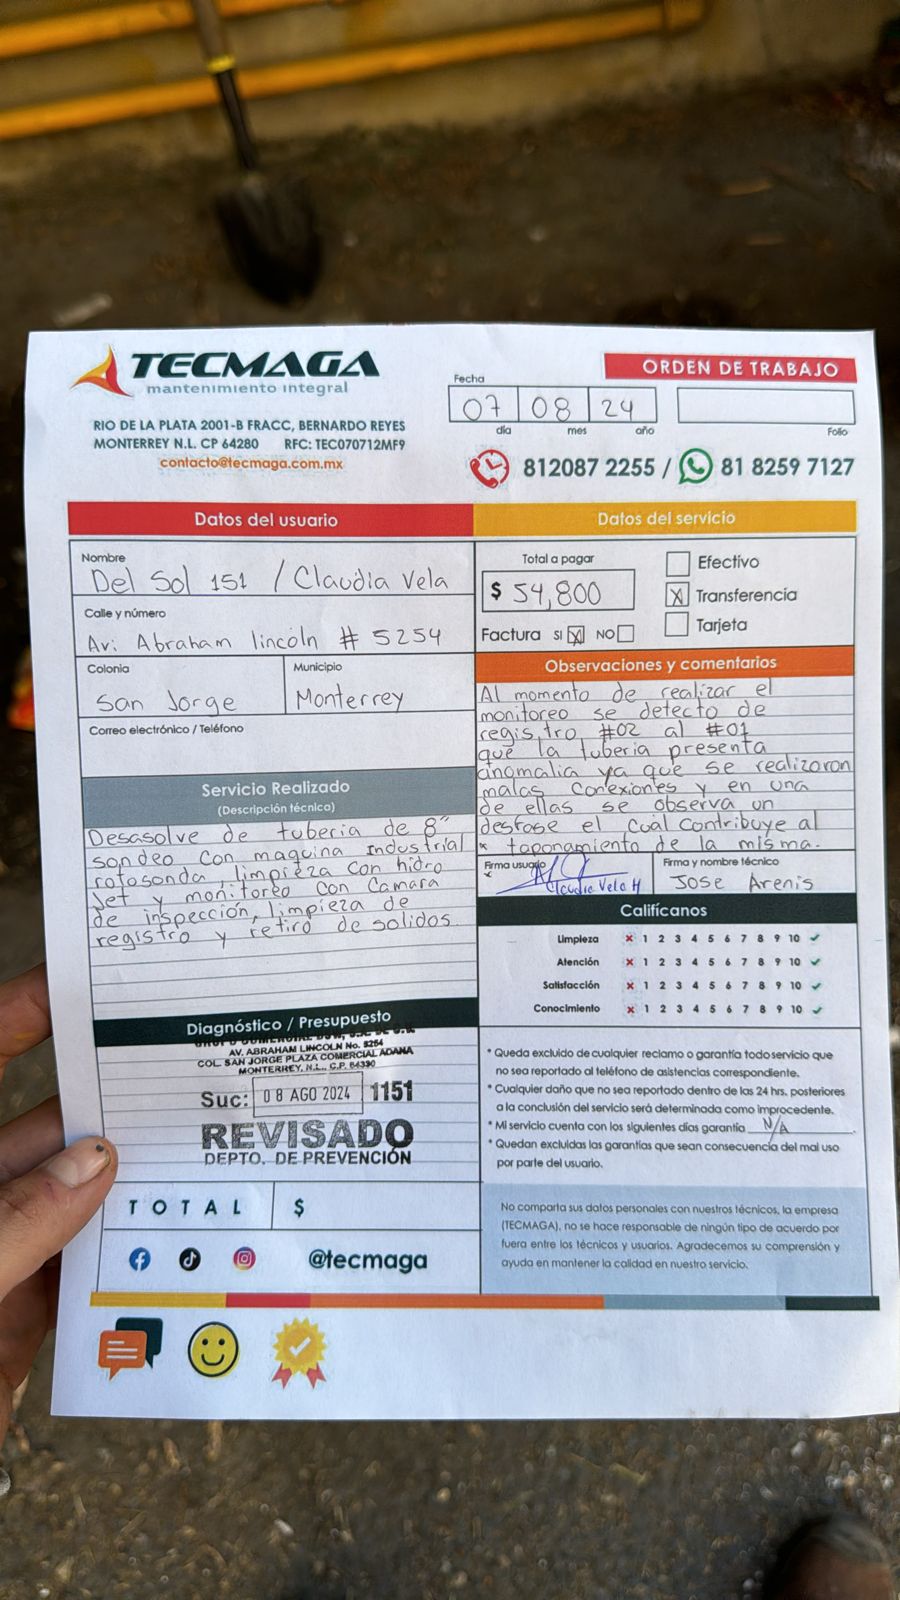 TECMAGA
mantenimiento integral
RIO DE LA PLATA 2001-B FRACC, BERNARDO REYES
MONTERREY N.L. CP 64280 RFC: TEC070712MF9
contacto@tecmaga.com.mx
ORDEN DE TRABAJO
Fecha
07 08 24
día mes año
Folio
812087 2255 / 81 8259 7127
Datos del usuario
Nombre
Del Sol 151 / Claudia Vela
Calle y número
Av: Abraham lincoln # 5254
Colonia
San Jorge
Municipio
Monterrey
Correo electrónico / Teléfono
Servicio Realizado
(Descripción técnica)
Desasolve de tuberia de 8"
sondeo con maquina Industrial
rotosonda, limpieza con hidro
Jet y monitoreo con Camara
de inspección, limpieza de
registro y retiro de solidos
Diagnóstico / Presupuesto
AV. ABRAHAM LINCOLN No. 5254
COL. SAN JORGE PLAZA COMERCIAL ADANA
MONTERREY, N.L., C.P. 64330
Suc: 08 AGO 2024 1151
REVISADO
DEPTO. DE PREVENCIÓN
TOTAL $
@tecmaga
Datos del servicio
Total a pagar
$ 54,800
Efectivo
X Transferencia
Tarjeta
Factura SI X NO
Observaciones y comentarios
Al momento de realizar el
monitoreo se detecto de
registro #02 al #01
que la tuberia presenta
anomalia ya que se realizaron
malas Conexiones y en una
de ellas se observa un
desfase el cual contribuye al
taponamiento de la misma.
Firma usuario
Claudia Vela H
Firma y nombre técnico
Jose Arenis
Califícanos
Limpieza x 1 2 3 4 5 6 7 8 9 10 ✓
Atención x 1 2 3 4 5 6 7 8 9 10 ✓
Satisfacción x 1 2 3 4 5 6 7 8 9 10 ✓
Conocimiento x 1 2 3 4 5 6 7 8 9 10 ✓
* Queda excluido de cualquier reclamo o garantía todo servicio que
no sea reportado al teléfono de asistencias correspondiente.
* Cualquier daño que no sea reportado dentro de las 24 hrs. posteriores
a la conclusión del servicio será determinada como improcedente.
* Mi servicio cuenta con los siguientes días garantía N/A
* Quedan excluidas las garantías que sean consecuencia del mal uso
por parte del usuario.
No comparta sus datos personales con nuestros técnicos, la empresa
(TECMAGA), no se hace responsable de ningún tipo de acuerdo por
fuera entre los técnicos y usuarios. Agradecemos su comprensión y
ayuda en mantener la calidad en nuestro servicio.